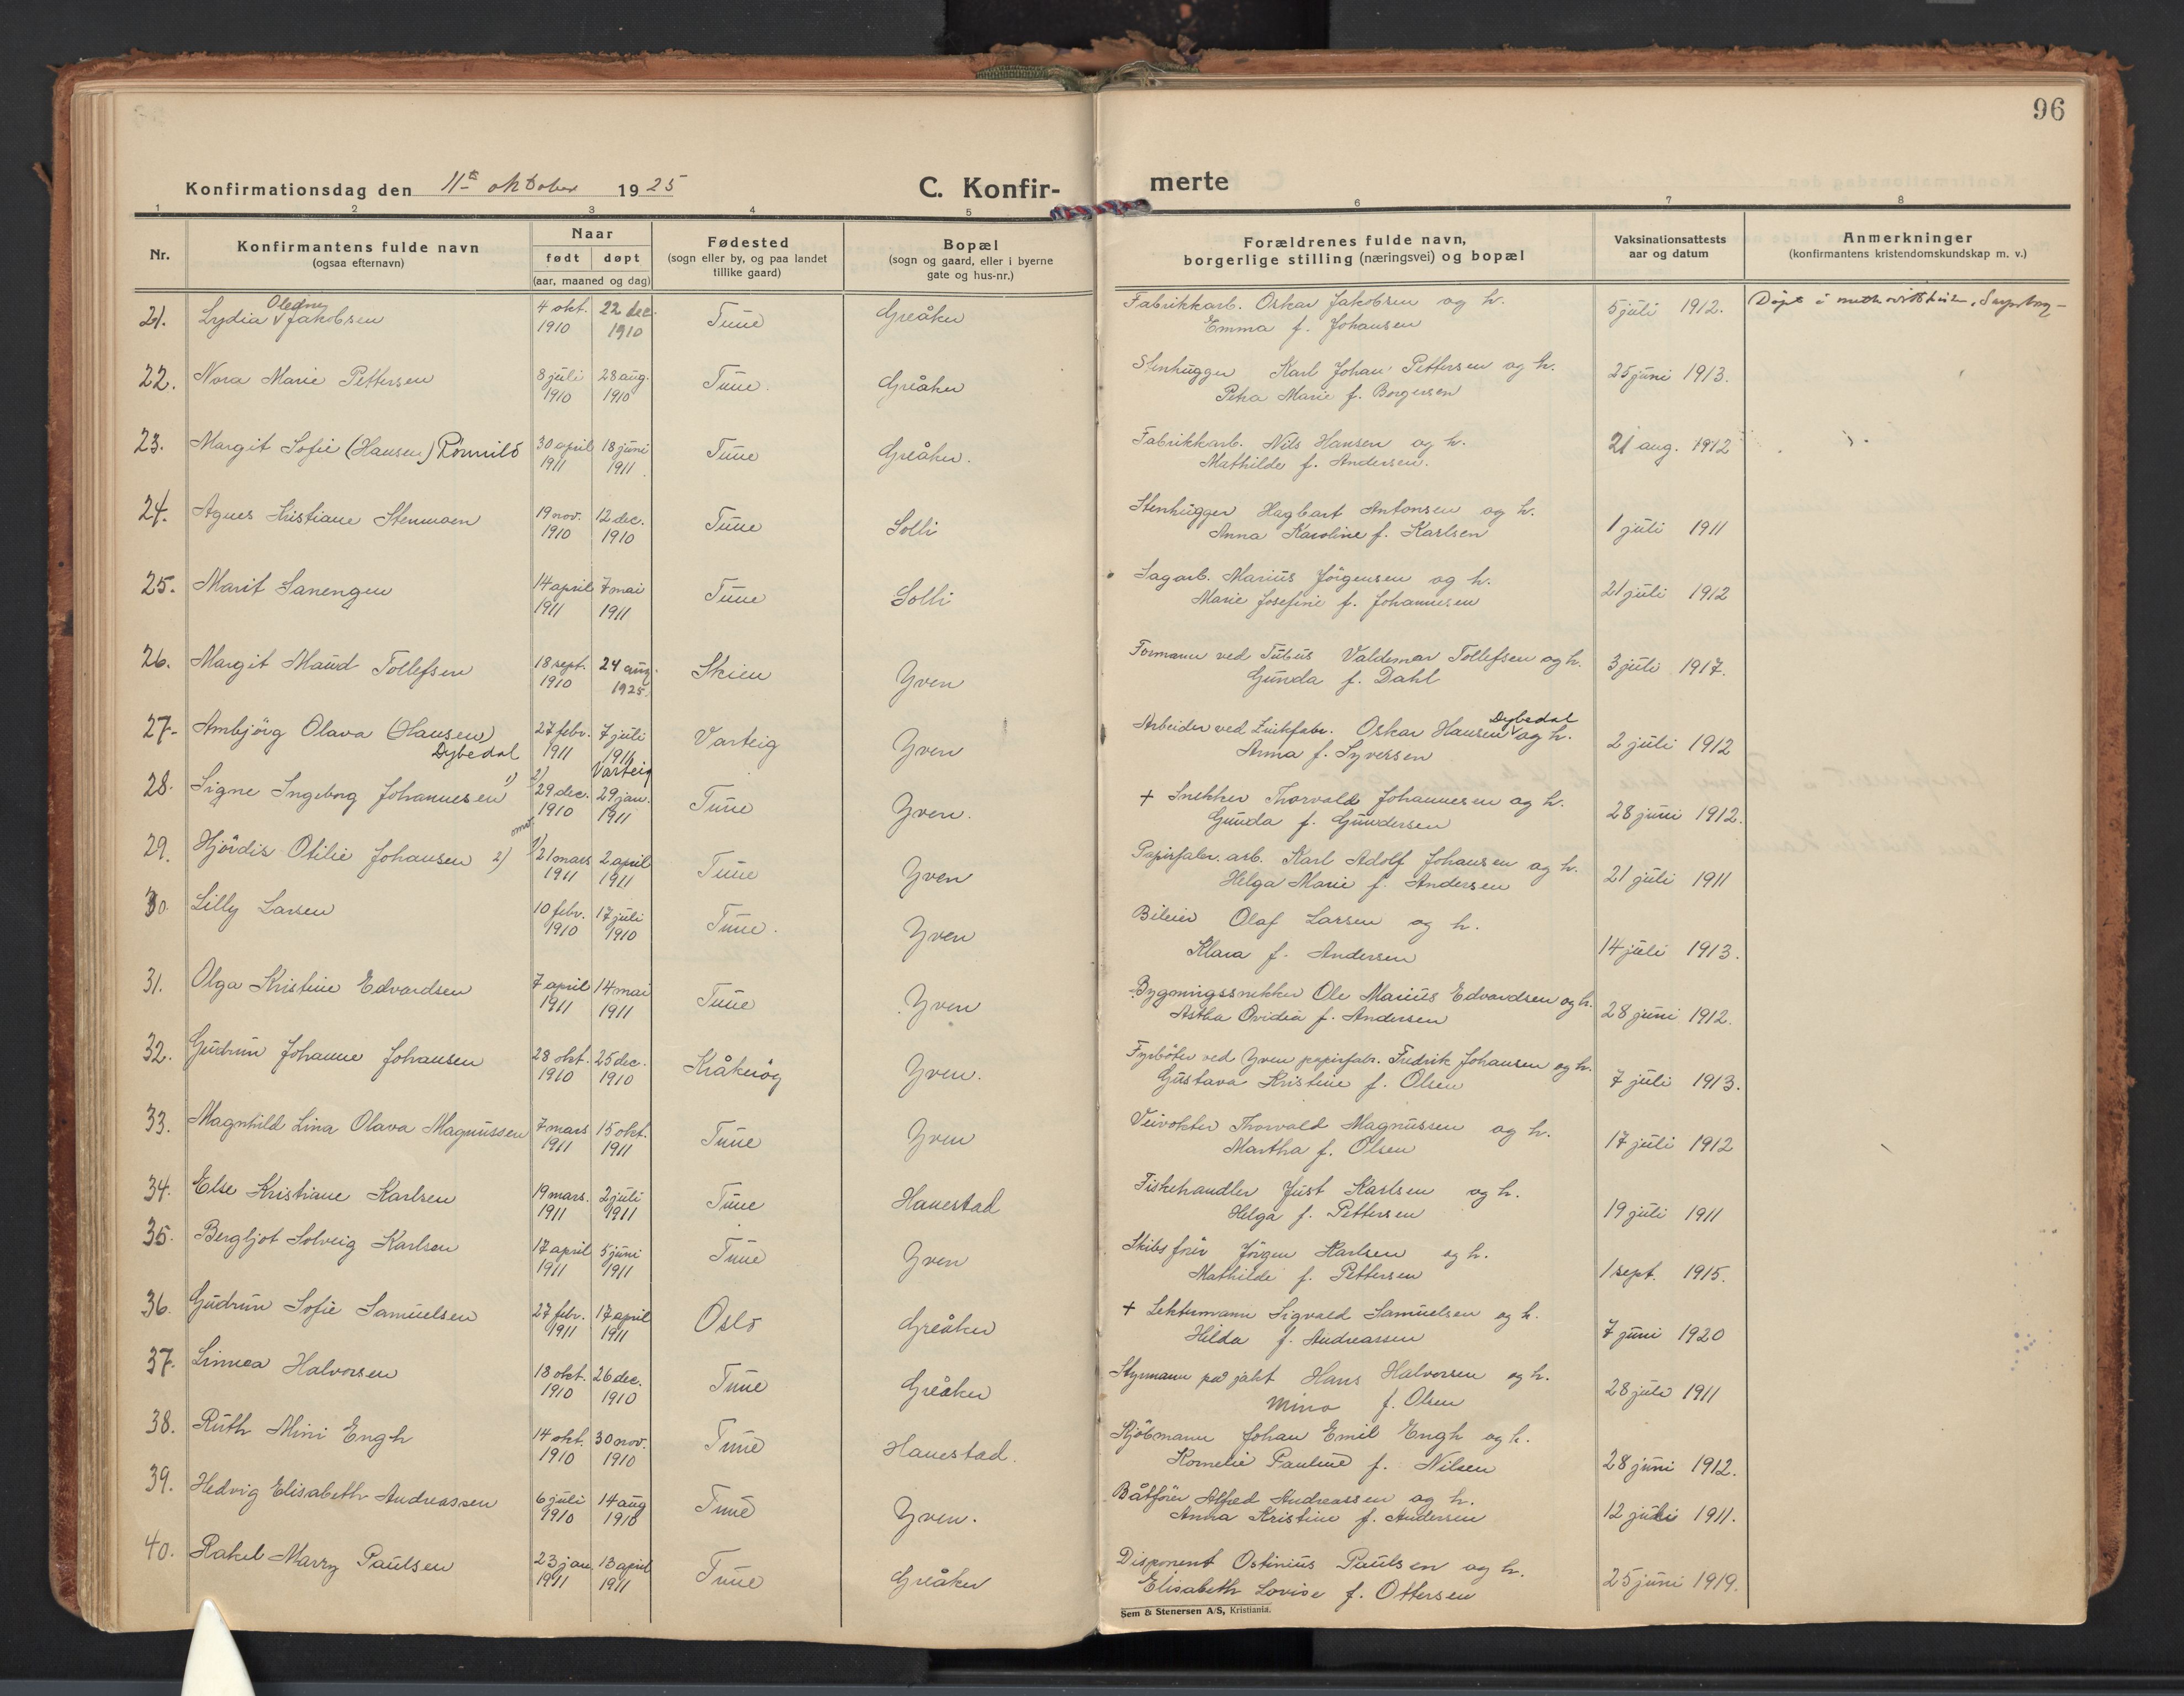 96
Konfirmationsdag den 11te oktober 1925
C. Konfir- merte
1 2 3 4 5 6 7 8
Nr.
Konfirmantens fulde navn
(ogsaa efternavn)
Naar
født døpt
(aar, maaned og dag)
Fødested
(sogn eller by, og paa landet
tillike gaard)
Bopæl
(sogn og gaard, eller i byerne
gate og hus-nr.)
Forældrenes fulde navn,
borgerlige stilling (næringsvei) og bopæl
Vaksinationsattests
aar og datum
Anmerkninger
(konfirmantens kristendomskundskap m. v.)
Oledny
21. Lydia Jakobsen 4 okt. 22 dec. Tune Greåker Fabrikkarb. Oskar Jakobsen og h. 5 juli 1912. Døpt i
1910 1910 Emma f. Johansen
22. Nora Marie Pettersen 8 juli 28 aug. Tune. Greåker Stenhugger Karl Johan Pettersen og h. 25 juni 1913.
1910 1910 Petra Marie f. Borgersen
23. Margit Sofie (Hansen) Römilö 30 april 18 juni Tune Greåker. Fabrikkarb. Nils Hansen og h. 21 aug. 1912
1911 1911 Mathilde f. Andersen.
24. Agnes Kristiane Stenmoen 19 nov. 12 dec. Tune Solli Stenhugger Hagbart Antonsen og h. 1 juli 1911
1910 1910 Anna Karoline f. Karlsen
25. Marit Sanengen 14 april 7 mai Tune Solli Sagarb. Marius Jörgensen og h. 21 juli 1912
1911 1911 Marie Josefine f. Johannesen
26. Margit Maud Tollefsen 18 sept. 24 aug. Skien Yven Formann ved Tubus Valdemar Tollefsen og h. 3 juli 1917.
1910 1925. Gunda f. Dahl
Dybedal
27. Ambjörg Olava (Hansen) 27 febr. 7 juli Varteig Yven Arbeider ved Zinkfabr. Oskar Hansen og h. 2 juli 1912
Dybedal 1911 1911 Anna f. Syversen
Varteig
28. Signe Ingeborg Johannesen 1) 2) 29 dec. 29 jan. Tune Yven. + Snekker Thorvald Johannesen og h. 28 juni 1912.
1910 1911 Gunda f. Gundersen
omv.
29. Hjördis Otilie Johansen 2) 1) 21 mars 2 april Tune Yven Papirfabr. arb. Karl Adolf Johansen og h. 21 juli 1911
1911 1911 Helga Marie f. Andersen
30. Lilly Larsen 10 febr. 17 juli Tune. Yven Bileier Olaf Larsen og h. 14 juli 1913.
1910 1910 Klara f. Andersen
31. Olga Kristine Edvardsen 7 april 14 mai Tune Yven Bygningssnekker Ole Marius Edvardsen og h. 28 juni 1912.
1911 1911 Astha Ovidia f. Andersen
32. Gudrun Johanne Johansen 28 okt. 25 dec. Kråkeröy Yven. Fyrböter ved Yven papirfabr. Fredrik Johansen og h. 7 juli 1913.
1910 1910 Gustava Kristine f. Olsen
33. Magnhild Lina Olava Magnussen 7 mars 15 okt. Tune Yven Veivokter Thorvald Magnussen og h. 17 juli 1912
1911 1911 Martha f. Olsen
34. Else Kristiane Karlsen 19 mars. 2 juli Tune Hanestad Fiskehandler Just Karlsen og h. 19 juli 1911
1911 1911 Helga f. Pettersen
35. Bergljot Solveig Karlsen 17 april 5 juni Tune Yven Skibsförer Jörgen Karlsen og h. 1 sept. 1915.
1911 1911 Mathilde f. Pettersen
36. Gudrun Sofie Samuelsen 27 febr. 17 april Oslo Greåker + Lektermann Sigvald Samuelsen og h. 7 juni 1920
1911 1911 Hilda f. Andreassen
37. Linnea Halvorsen 18 okt. 26 dec. Tune Greåker Styrmann på jakt Hans Halvorsen og h. 28 juli 1911
1910 1910 Mina f. Olsen
38. Ruth Mini Engh 14 okt. 30 nov. Tune Hanestad. Kjöbmann Johan Emil Engh og h. 28 juni 1912.
1910 1910 Kornelie Pauline f. Nilsen
39. Hedvig Elisabeth Andreassen 6 juli 14 aug Tune Yven. Båtförer Alfred Andreassen og h. 12 juli 1911.
1910 1910 Anna Kristine f. Andersen
40. Rakel Marry Paulsen 23 jan. 13 april Tune Greåker Disponent Ostinius Paulsen og h. 25 juni 1919.
1911 1911 Elisabeth Lovise f. Ottersen
Sem & Stenersen A/S, Kristiania.